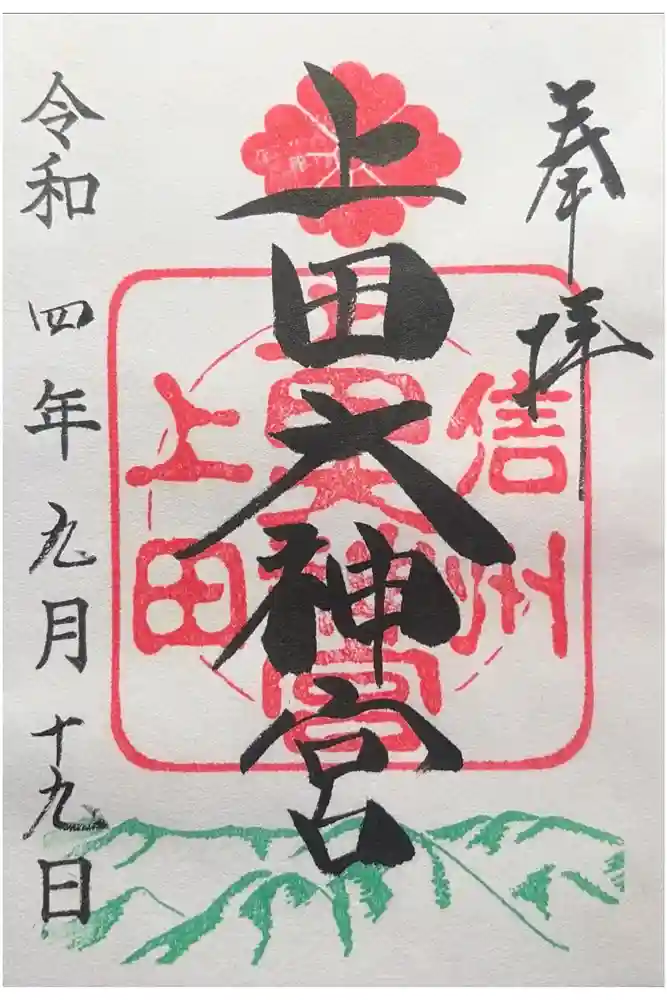 奉拝
信州
上田大神宮
上田大神宮
上田
令和四年九月十九日